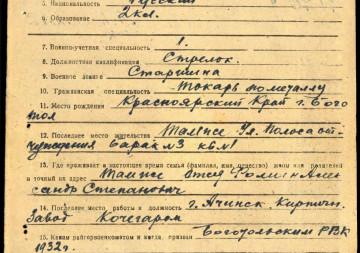 5. Национальность Русский
6. Образование 2 кл.
7. Военно-учетная специальность 1.
8. Должностная квалификация Стрелок.
9. Военное звание Старшина
10. Гражданская специальность токарь по металлу
11. Место рождения Красноярский Край г. Бого
тол
12. Последнее место жительства
барак №3 кв. №1
13. Где проживает в настоящее время семья (фамилия, имя, отчество) жены или родителей
и точный их адрес отец Фомин Алек
сандр Степанович
14. Последнее место работы и должность г. Ачинск Кирпичн.
Завод Кочегаром
15. Каким райгорвоенкоматом и когда призван Боготольским РВК
1932 г.